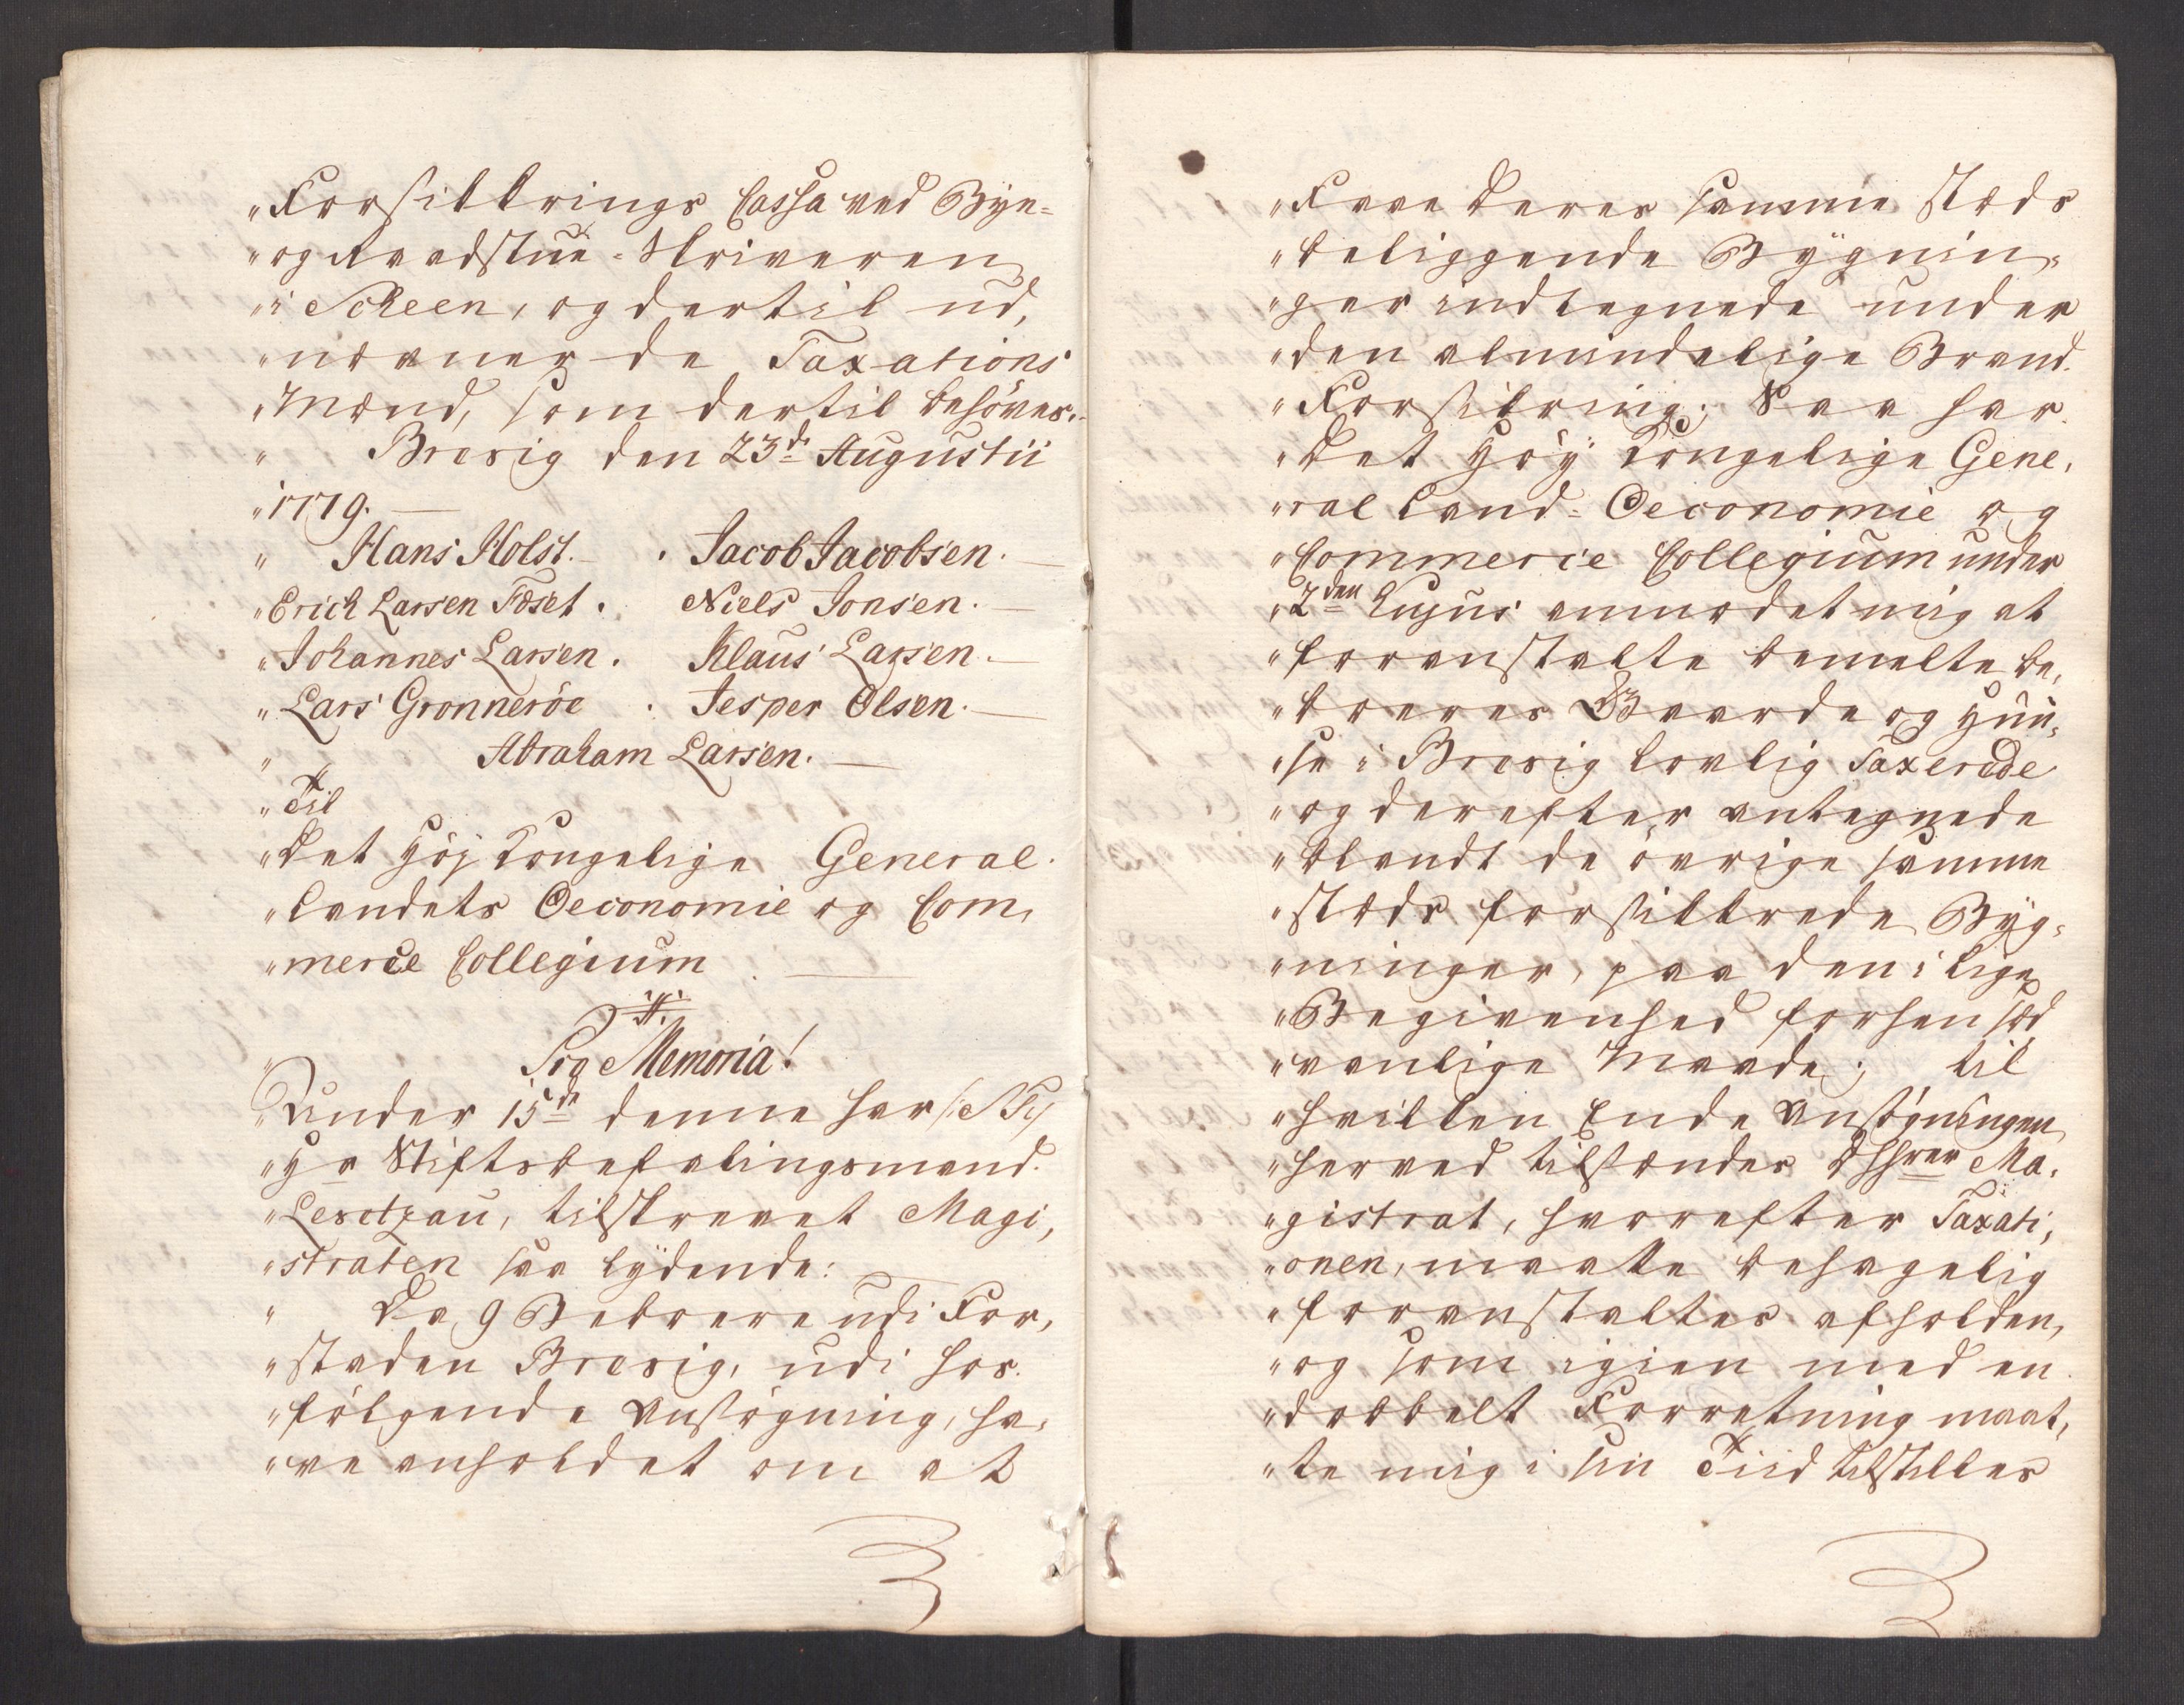 "Forsikkrings Cassa ved Bye-
"og Raadstue-Skriveren
"i Scheen, og dertil ud,
"nævner de Taxations
"Mænd, som dertil behöves.
" Brevig den 23de Augustii
"1779.
" Hans Holst. Jacob Jacobsen.
"Erich Larsen Foset. Niels Jonsen.
"Johannes Larsen. Klaus Larsen.
"Lars Gronneröe. Jesper Olsen.
" Abraham Larsen.
"Til
"Det Höj Kongelige General
"Landets Oeconomie og Com,
"merce Collegium
Pro Memoria!
"Under 15de denne har
"Hr Stiftsbefalingsmand
"Levetzau, tilskrevet Magi,
"straten saa lÿdende:
" Da 9 Beboere udi For,
"staden Brevig, udi hos
"fölgende Ansögning, ha,
"ve anholdet om at
"Faae deres samme stæds
"beliggende Bÿgnin,
"ger indtegnede under
"den almindelige Brand
"Forsikring; Saa har
"Det Höÿ Kongelige Gene,
"ral Land-Oeconomie og
"Commerce Collegium under
"2den hujus anmodet mig at
"foranstalte bemelte be,
"boeres Gaarde og Huu,
"se i Brevig lovlig Taxerede
"og derefter antegnede
"blandt de övrige samme
"stæds forsikkrede Bÿg,
"ninger, paa den i lige
"Begivenhed forhen sæd
"vanlige Maade; til
"hvilken Ende Ansögningen
"herved tilsendes Ma,
"gistrat, hvorefter Taxati,
"onen, maatte behagelig
"foranstaltes afholden,
"og som igien med en
"dobbelt Forretning maat,
"te mig i sin Tiid tilstilles